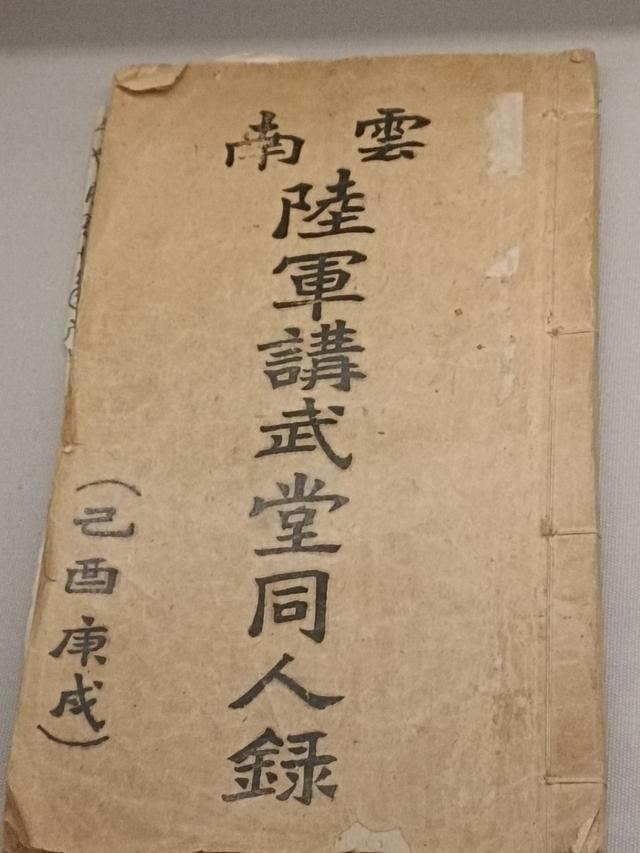 雲南
陸軍講武堂同人録
（己酉庚戌）